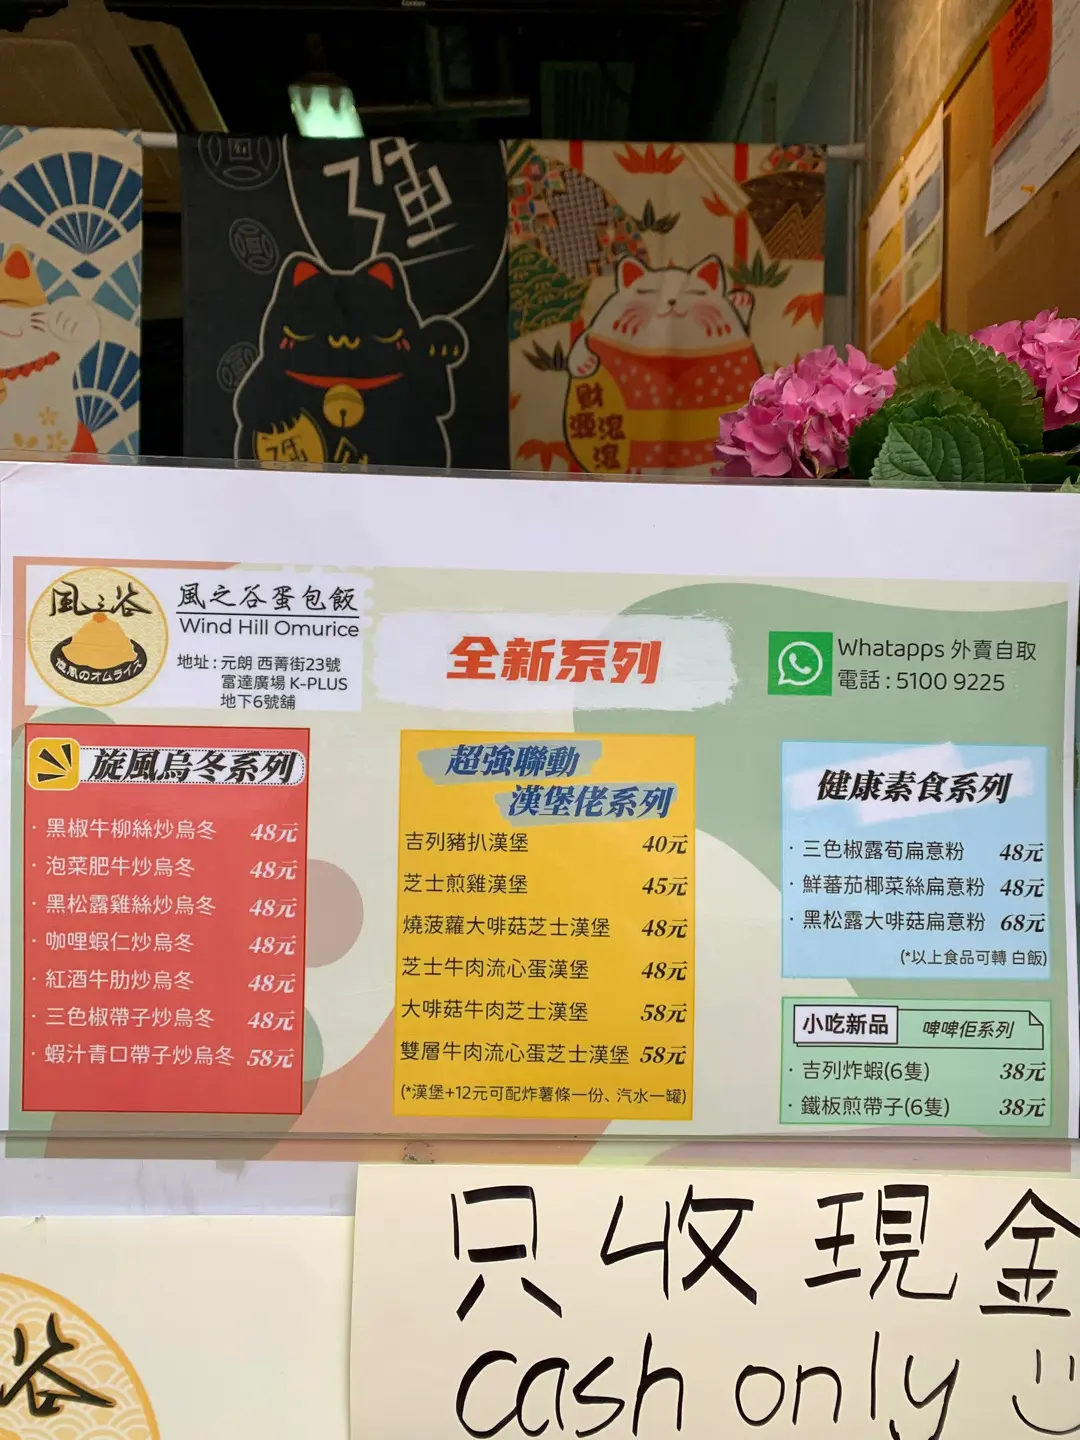 財
風之谷
旋風のオムライス
風之谷蛋包飯
Wind Hill Omurice
地址 : 元朗 西菁街23號
富達廣場 K-PLUS
地下6號舖
全新系列
Whatapps 外賣自取
電話 : 5100 9225
旋風烏冬系列
· 黑椒牛柳絲炒烏冬 48元
· 泡菜肥牛炒烏冬 48元
· 黑松露雞絲炒烏冬 48元
· 咖哩蝦仁炒烏冬 48元
· 紅酒牛肋炒烏冬 48元
· 三色椒帶子炒烏冬 48元
· 蝦汁青口帶子炒烏冬 58元
超強聯動
漢堡佬系列
吉列豬扒漢堡 40元
芝士煎雞漢堡 45元
燒菠蘿大啡菇芝士漢堡 48元
芝士牛肉流心蛋漢堡 48元
大啡菇牛肉芝士漢堡 58元
雙層牛肉流心蛋芝士漢堡 58元
(*漢堡+12元可配炸薯條一份、汽水一罐)
健康素食系列
· 三色椒露荀扁意粉 48元
· 鮮蕃茄椰菜絲扁意粉 48元
· 黑松露大啡菇扁意粉 68元
(*以上食品可轉 白飯)
小吃新品 啤啤佢系列
· 吉列炸蝦(6隻) 38元
· 鐵板煎帶子(6隻) 38元
只收現金
cash only
谷